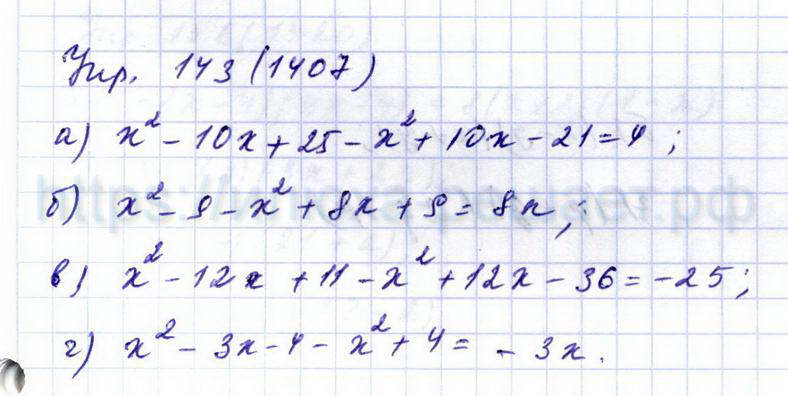 Упр. 143 (1407)
а) x² - 10x + 25 - x² + 10x - 21 = 4 ;
б) x² - 9 - x² + 8x + 9 = 8x ;
в) x² - 12x + 11 - x² + 12x - 36 = -25 ;
г) x² - 3x - 4 - x² + 4 = - 3x .